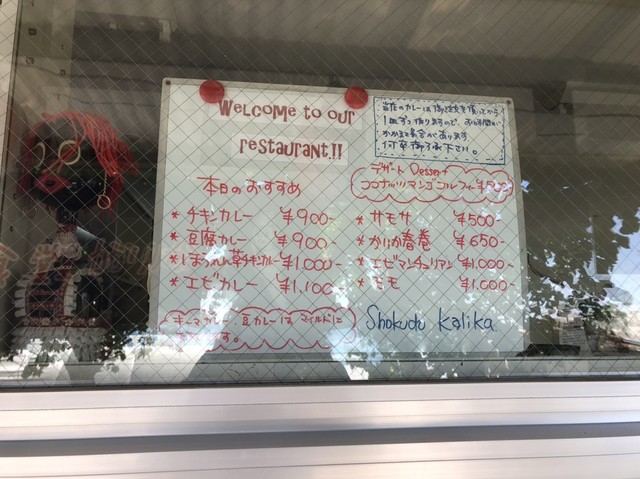 Welcome to our
restaurant!!
当店のカレーは御注文を頂いてから
1皿ずつ作りますので、お時間が
かかる場合があります
何卒御了承下さい。
本日のおすすめ
* チキンカレー ¥900-
* 豆腐カレー ¥900
* ほうれん草チキンカレー ¥1,000-
* エビカレー ¥1,100-
キーマカレー、豆カレーは マイルドに
デザート Dessert
ココナッツマンゴクルフィー ¥500
* サモサ ¥500-
* かりか春巻 ¥650-
* エビマンチュリアン ¥1,000-
* モモ ¥1,000-
Shokudu Kalika